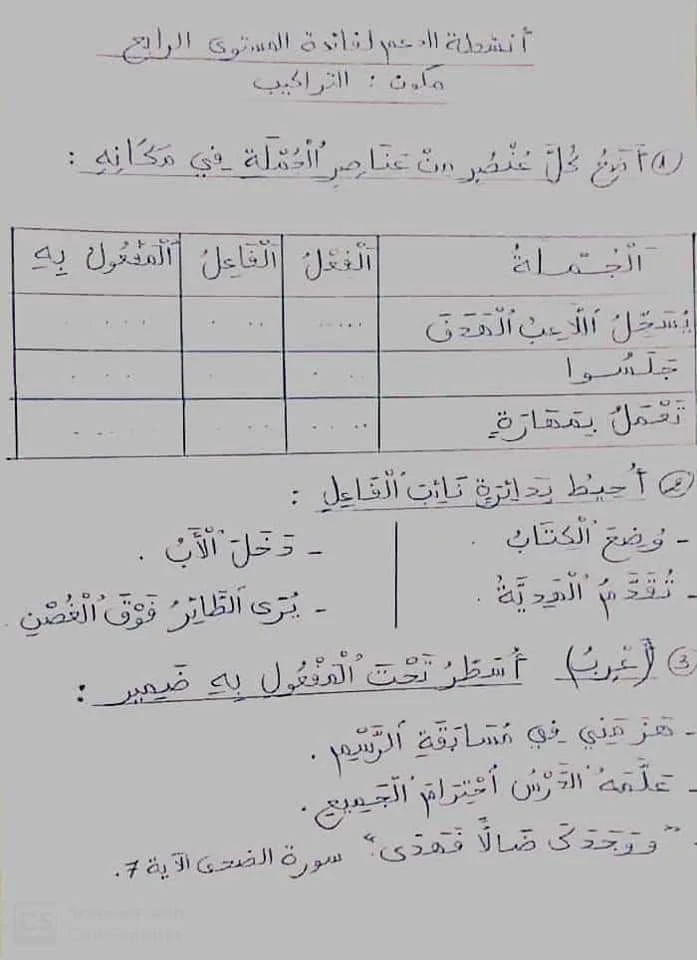 أنشطة الدعم لفائدة المستوى الرابع
مكون : التراكيب
1) أَضَعُ كُلَّ عُنْصُرٍ مِنْ عَنَاصِرِ الْجُمْلَةِ فِي مَكَانِهِ :
الْجُمْلَةُ الْفِعْلُ الْفَاعِلُ الْمَفْعُولُ بِهِ
يُسَجِّلُ اللَّاعِبُ الْهَدَفَ ..... ... ...
جَلَسُوا ... ... ...
تَعْمَلُ بِمَهَارَةٍ .... ... .....
2) أُحِيطُ بِدَائِرَةٍ نَائِبَ الْفَاعِلِ :
- وُضِعَ الْكِتَابُ . - دَخَلَ الْأَبُ .
- تُقَدَّمُ الْهَدِيَّةُ . - يُرَى الطَّائِرُ فَوْقَ الْغُصْنِ .
3) أُسَطِّرُ تَحْتَ الْمَفْعُولِ بِهِ ضَمِير :
- هَزَمَنِي فِي مُسَابَقَةِ الرَّسْمِ .
- عَلَّمَهُ الدَّرْسُ احْتِرَامَ الْجَمِيعِ .
- "وَوَجَدَكَ ضَالًّا فَهَدَى" سورة الضحى الآية 7.
CS